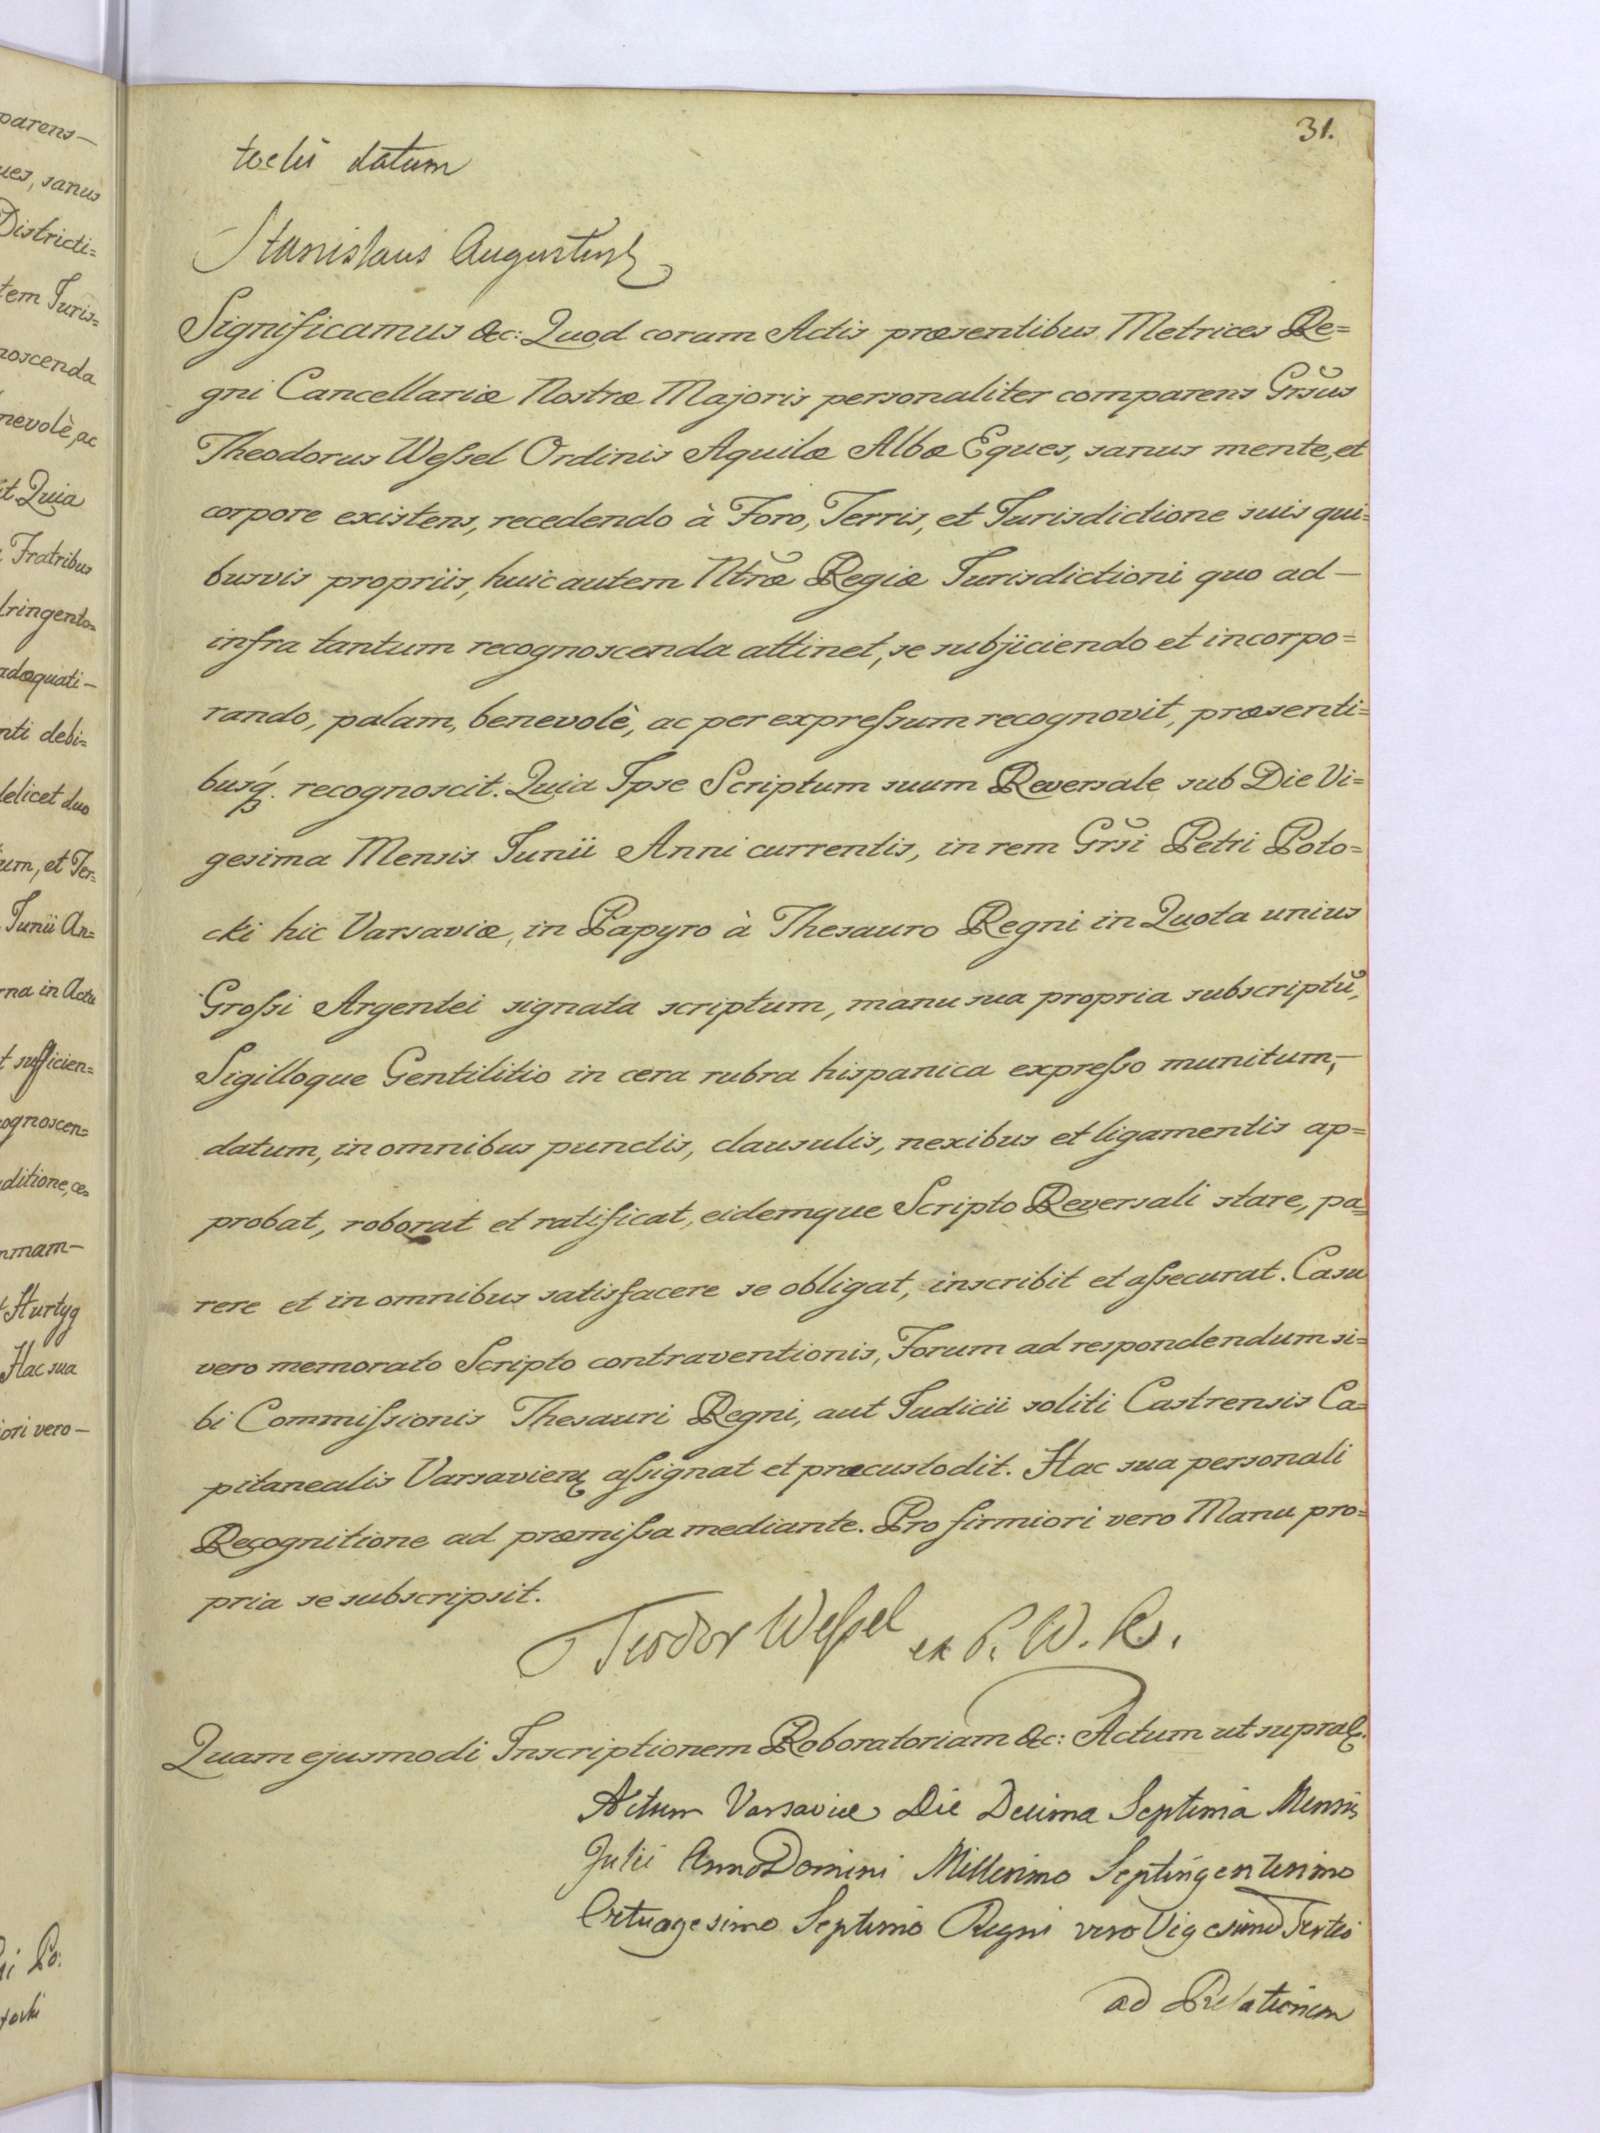 31.
datum
Stanislaus Augustus
Significamus &c: Quod coram Actis præsentibus Metrices Re=
gni Cancellariæ Nostræ Majoris personaliter comparens Grsũs
Theodorus Weſsel Ordinis Aquilæ Albæ Eques, sanus mente, et
corpore existens, recedendo à Foro, Terris, et Jurisdictione suis qui=
busvis propriis, huic autem Ntræ Regiæ Jurisdictioni quo ad—
infra tantum recognoscenda attinet, se subjiciendo et incorpo=
rando, palam, benevolè, ac per expreſsum recognovit, præsenti=
busq́. recognoscit. Quia Ipse Scriptum suum Reversale sub Die Vi=
gesima Mensis Junii Anni currentis, in rem Grsĩ Petri Poto=
cki hic Varsaviæ, in Papyro à Thesauro Regni in Quota unius
Groſsi Argentei signata scriptum, manu sua propria subscriptũ,
Sigilloque Gentilitio in cera rubra hispanica expreſso munitum,—
datum, in omnibus punctis, clausulis, nexibus et ligamentis ap=
probat, roborat et ratificat, eidemque Scripto Reversali stare, pa=
rere et in omnibus satisfacere se obligat, inscribit et aſsecurat. Casu
vero memorato Scripto contraventionis, Forum ad respondendum si=
bi Commiſsionis Thesauri Regni, aut Judicii soliti Castrensis Ca=
pitanealis Varsavien aſsignat et præcustodit. Hac sua personali
Recognitione ad præmiſsa mediante. Pro firmiori vero Manu pro=
pria se subscripsit.
Teodor Weſsel ex P. W. K.
Quam ejusmodi Inscriptionem Roboratoriam &c: Actum ut supra
Actum Varsaviæ Die Decima Septima Mensis
Julii Anno Domini Millesimo Septingentesimo
Octuagesimo Septimo Regni vero Vigesimo Tertio
ad Relationem
parens—
ues, sanus
Districti=
tem Juris=
noscenda
nevolè, ac
it Quia
Fratribus
dringento=
adæquati—
nti debi=
delicet duo
um, et Ter=
Junii An=
rna in Actu
t sufficien=
cognoscen=
ditione, ce=
mmam—
Hurtyg
Hac sua
iori vero—